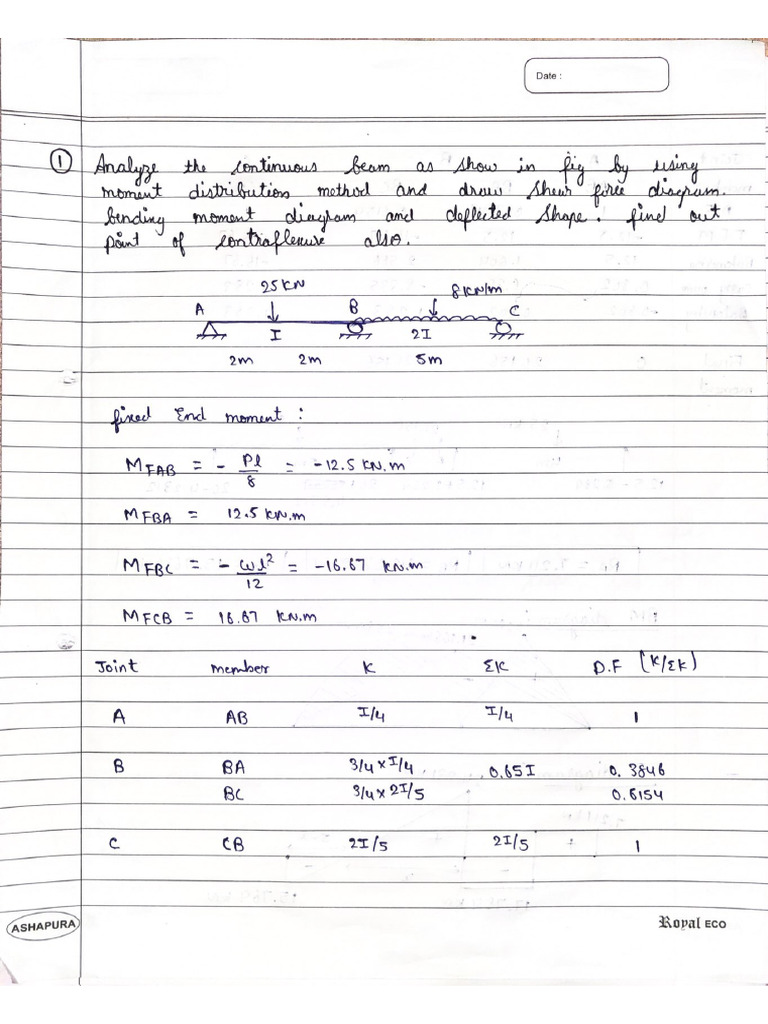 Date :
① Analyze the continuous beam as show in fig by using
moment distribution method and draw shear force diagram.
bending moment diagram and deflected shape. find out
point of contraflexure also.
25 KN
A B 8 KN/m C
I 2I
2m 2m 5m
fixed End moment :
MFAB = - Pl/8 = -12.5 KN.m
MFBA = 12.5 KN.m
MFBC = - ωl²/12 = -16.67 KN.m
MFCB = 16.67 KN.m
Joint member K ΣK D.F (K/ΣK)
A AB I/4 I/4 1
B BA 3/4 × I/4 0.65I 0.3846
BC 3/4 × 2I/5 0.6154
C CB 2I/5 2I/5 1
ASHAPURA
Royal ECO